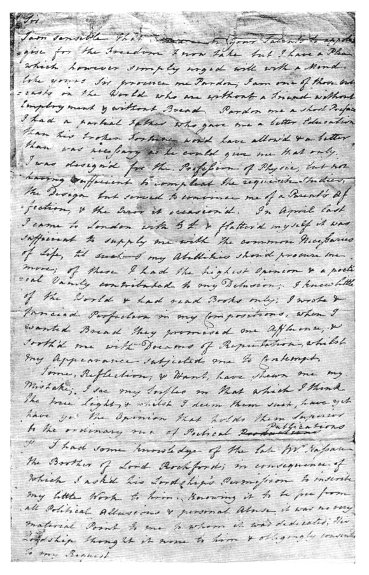 Sir,
I am sensible that I need your Talents to apolo-
gise for the Freedom I now take but I have a Plea
which however simply urged will with a Mind
like yours Sir procure me Pardon, I am one of those out
casts on the World who are without a Friend without
Employment & without Bread. Pardon me a short Preface
I had a partial Father who gave me a better Education
than his broken Fortune woud have allow'd & a better
than was necessary as he could give me that only.
I was design'd for the Profession of Physic, but not
having sufficient to compleat the requisite Studies,
the Design but served to convince me of a Parent's Af
fection, & the Error it occasion'd. In April last
I came to London with 3£ & flatter'd myself it was
sufficient to supply me with the common Necessaries
of Life, till such as my Abilities should procure me
more, of these I had the highest Opinion & a poeti
cal Vanity contributed to my Delusion; I knew little
of the World & had read Books only; I wrote &
fancied Perfection in my Compositions, when I
wanted Bread they promised me Affluence, &
sooth'd me with Dreams of Reputation, whilst
my Appearance subjected me to Contempt.
Time, Reflection, & Want, have shewn me my
Mistake, I see my Trifles in that which I think
the true Light, & whilst I deem them such, have yet
the Opinion that holds them superior
to the ordinary run of Poetical Publications
I had some knowledge of the late Mr. Nassau
the Brother of Lord Rochford; in consequence of
Which I asked his Lordship's Permission to inscribe
my little Work to him. Knowing it to be free from
all Political Allusions & personal Abuse it was no very
material Point to me to whom it was dedicated; His
Lordship thought it none to him & obligingly consented
to my Request